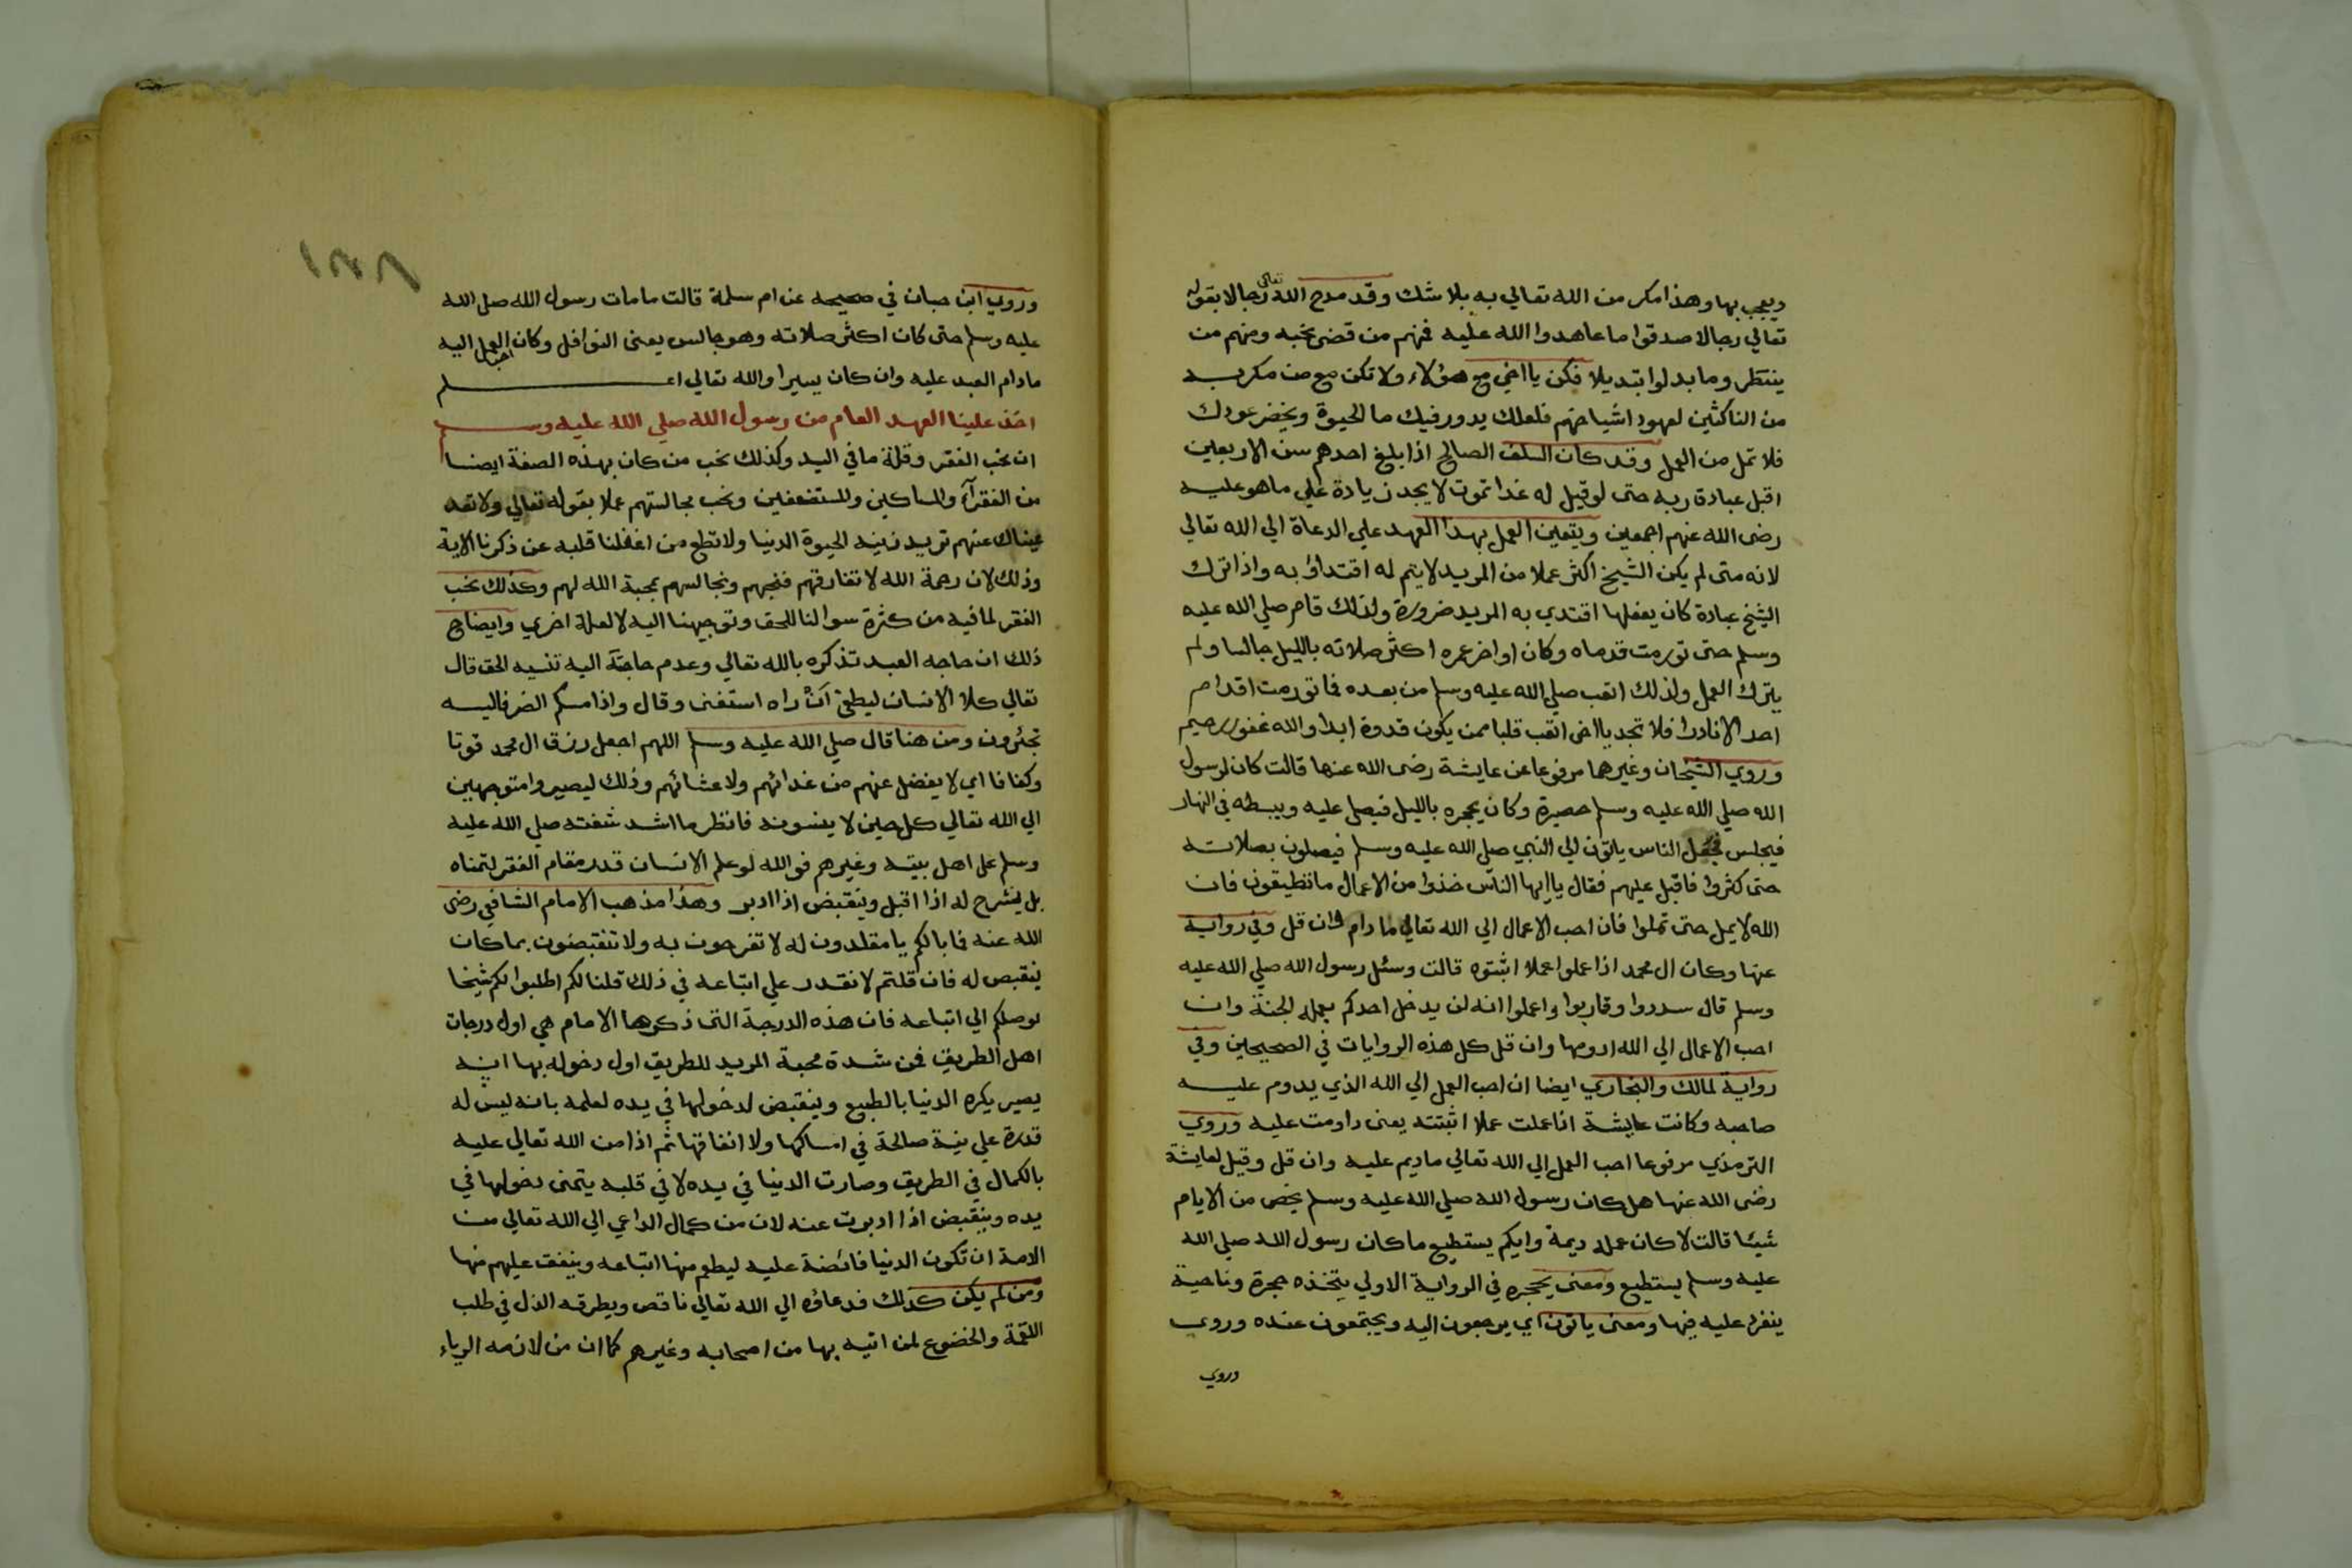 ويعجب بها وهذا مكر من الله تعالي به بلا شك وقد مدح الله تعالى رجالا بقوله
تعالي رجالا صدقوا ما عاهدوا الله عليه فمنهم من قضى نحبه ومنهم من
ينتظر وما بدلوا تبديلا فكن يا اخي مع هؤلاء ولا تكن مع من مكر به
من الناكثين لعهود اشياخهم فلعلك يدور فيك ما الحيوة ويخضر عودك
فلا تمل من العمل وقد كان السلف الصالح اذا بلغ احدهم سن الاربعين
اقبل عبادة ربه حتى لو قيل له غدا تموت لا يجد زيادة علي ما هو عليه
رضى الله عنهم اجمعين ويتعين العمل بهذا العهد علي الدعاة الي الله تعالى
لانه متى لم يكن الشيخ اكثر عملا من المريد لا يتم له اقتداؤ به واذا ترك
الشيخ عبادة كان يفعلها اقتدي به المريد ضرورة ولذلك قام صلي الله عليه
وسلم حتى تورمت قدماه وكان اواخر عمره اكثر صلاته بالليل جالسا ولم
يترك العمل ولذلك اتعب صلي الله عليه وسلم من بعده فما تورمت اقدام
احد الا نادرا فلا تجد يا اخى اتعب قلبا ممن يكون قدوة ابدا والله غفور رحيم
وروي الشيخان وغيرهما مرفوعا عن عايشة رضى الله عنها قالت كان لرسول
الله صلي الله عليه وسلم حصيرة وكان يحجره بالليل فيصلى عليه ويبسطه في النهار
فيجلس فجعل الناس ياتون الي النبي صلي الله عليه وسلم فيصلون بصلاته
حتى كثروا فاقبل عليهم فقال يا ايها الناس خذوا من الاعمال ما تطيقون فان
الله لا يمل حتى تملوا فان احب الاعمال الي الله تعالي ما دام وان قل وفي رواية
عنها وكان ال محمد اذا عملوا عملا اثبتوه قالت وسئل رسول الله صلي الله عليه
وسلم قال سددوا وقاربوا واعملوا انه لن يدخل احدكم بعمله الجنة وان
احب الاعمال الي الله ادومها وان قل كل هذه الروايات في الصحيحين وفي
رواية لمالك والبخاري ايضا ان احب العمل الي الله الذي يدوم عليه
صاحبه وكانت عايشة اذا عملت عملا اثبتته يعنى داومت عليه وروي
الترمذي مرفوعا احب العمل الي الله تعالي ما ديم عليه وان قل وقيل لعايشة
رضى الله عنها هل كان رسول الله صلي الله عليه وسلم يخص من الايام
شيئا قالت لا كان عمله ديمة وايكم يستطيع ما كان رسول الله صلي الله
عليه وسلم يستطيع ومعنى يحجره في الرواية الاولي يتخذه حجرة وناحية
ينفرد عليه فيها ومعنى ياتون اي يرجعون اليه ويجتمعون عنده وروي
وروي
وروي ابن حبان في صحيحه عن ام سلمة قالت ما مات رسول الله صلي الله
عليه وسلم حتى كان اكثر صلاته وهو جالس يعنى النوافل وكان احب العمل اليه
ما دام العبد عليه وان كان يسيرا والله تعالي اعلم
اخذ علينا العهد العام من رسول الله صلي الله عليه وسلم
ان نحب الفقر وقلة ما في اليد وكذلك نحب من كان بهذه الصفة ايضا
من الفقرآء والمساكين والمستضعفين ونحب مجالستهم عملا بقوله تعالي ولا تعد
عيناك عنهم تريد زينة الحيوة الدنيا ولا تطع من اغفلنا قلبه عن ذكرنا الاية
وذلك لان رحمة الله لا تفارقهم فنحبهم ونجالسهم بمحبة الله لهم وكذلك نحب
الفقر لما فيه من كثرة سوالنا للحق وتوجيهنا اليه لا لعلة اخري وايضاح
ذلك ان حاجه العبد تذكره بالله تعالي وعدم حاجته اليه تنسيه الحق قال
تعالي كلا الانسان ليطغى ان راه استغنى وقال واذا مسكم الضر فاليه
تجئرون ومن هنا قال صلي الله عليه وسلم اللهم اجعل رزق ال محمد قوتا
وكفافا اي لا يفضل عنهم من غدائهم ولا عشائهم وذلك ليصيروا متوجهين
الي الله تعالي كل حين لا ينسونه فانظر ما اشد شفقته صلي الله عليه
وسلم على اهل بيته وغيرهم فوالله لو علم الانسان قدر مقام الفقر لتمناه
بل ينشرح له اذا اقبل وينقبض اذا ادبر وهذا مذهب الامام الشافعي رضى
الله عنه فما بالكم يا مقلدون له لا تفرحون به ولا تنقبضون بما كان
ينقبض له فان قلتم لا نقدر علي اتباعه في ذلك قلنا لكم اطلبوا لكم شيخا
يوصلكم الي اتباعه فان هذه الدرجة التى ذكرها الامام هي اول درجات
اهل الطريق فمن شدة محبة المريد للطريق اول دخوله بها انه
يصير يكره الدنيا بالطبع وينقبض لدخولها في يده لعلمه بانه ليس له
قدرة علي نية صالحة في امساكها ولا انفاقها ثم اذا من الله تعالي عليه
بالكمال في الطريق وصارت الدنيا في يده لا في قلبه يتمنى دخولها في
يده وينقبض اذا ادبرت عنه لان من كمال الداعي الي الله تعالي من
الامة ان تكون الدنيا فائضة عليه ليطعم منها اتباعه وينفق عليهم منها
ومن لم يكن كذلك فدعاؤه الي الله تعالي ناقص ويطرقه الذل في طلب
اللقمة والخضوع لمن اتيه بها من اصحابه وغيرهم كما ان من لازمه الرياء